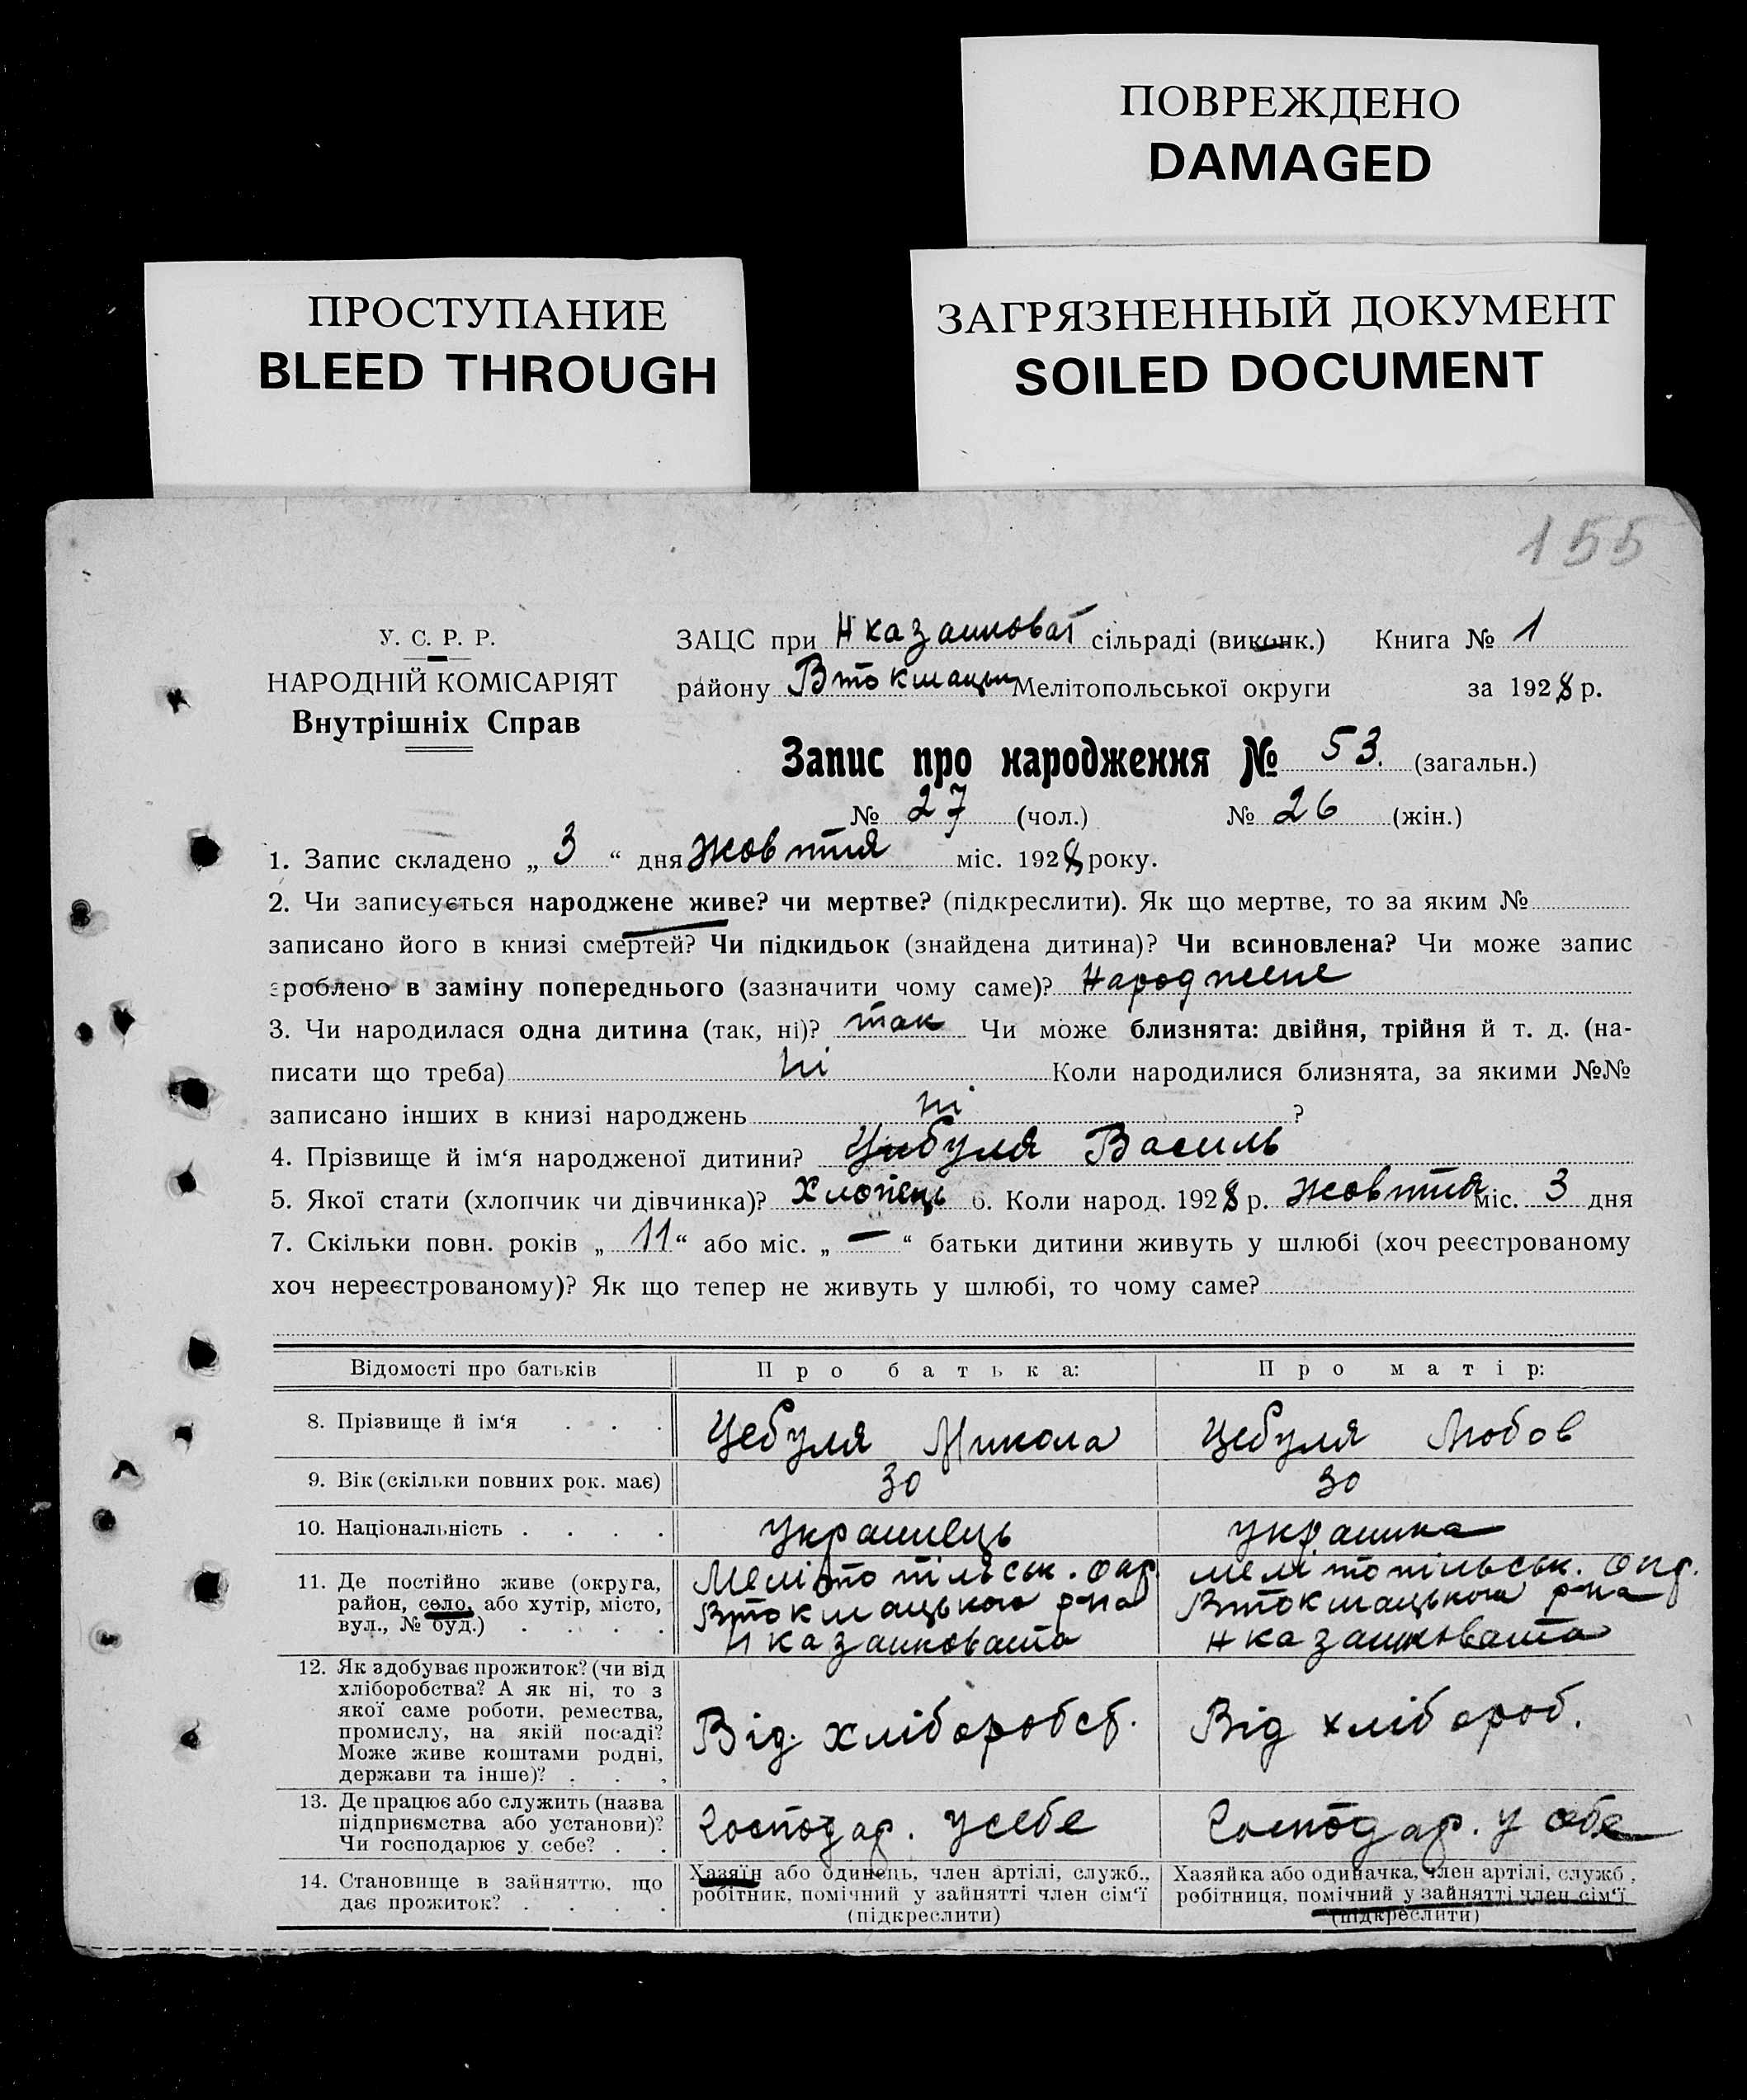 ПОВРЕЖДЕНО
DAMAGED
ПРОСТУПАНИЕ
BLEED THROUGH
ЗАГРЯЗНЕННЫЙ ДОКУМЕНТ
SOILED DOCUMENT
155
У. С. Р. Р.
НАРОДНІЙ КОМІСАРІЯТ
Внутрішніх Справ
ЗАЦС при Нказанковат сільраді (виконк.) Книга № 1
району Втокмацьк Мелітопольської округи за 1928 р.
Запис про народження № 53. (загальн.)
№ 27 (чол.) № 26 (жін.)
1. Запис складено „ 3 “ дня Жовтня міс. 1928 року.
2. Чи записується народжене живе? чи мертве? (підкреслити). Як що мертве, то за яким №
записано його в книзі смертей? Чи підкидьок (знайдена дитина)? Чи всиновлена? Чи може запис
зроблено в заміну попереднього (зазначити чому саме)? Народжене
3. Чи народилася одна дитина (так, ні)? так Чи може близнята: двійня, трійня й т. д. (на-
писати що треба) ні Коли народилися близнята, за якими №№
записано інших в книзі народжень ні ?
4. Прізвище й ім‘я народженої дитини? Цибуля Василь
5. Якої стати (хлопчик чи дівчинка)? Хлопець 6. Коли народ. 1928 р. Жовтня міс. 3 дня
7. Скільки повн. років „ 11 “ або міс. „ — “ батьки дитини живуть у шлюбі (хоч реєстрованому
хоч нереєстрованому)? Як що тепер не живуть у шлюбі, то чому саме?
Відомості про батьків Про батька: Про матір:
8. Прізвище й ім‘я . . . Цебуля Микола Цебуля Любов
9. Вік (скільки повних рок. має) 30 30
10. Національність . . . . Украинець Украинка
11. Де постійно живе (округа,
район, село, або хутір, місто,
вул., № буд.) . . . .
Мелітопільськ. окр.
Втокмацького р-на
Нказанковата
Мелітопільськ. окр.
Втокмацького р-на
Нказанковата
12. Як здобуває прожиток? (чи від
хліборобства? А як ні, то з
якої саме роботи, ремества,
промислу, на якій посаді?
Може живе коштами родні,
держави та інше)? . . .
Від. хліборобст.
Від хлібороб.
13. Де працює або служить (назва
підприємства або установи)?
Чи господарює у себе? . .
Господар. у себе
Господар. у себе
14. Становище в зайняттю, що
дає прожиток? . . . .
Хазяїн або одинець, член артілі, служб.,
робітник, помічний у зайнятті член сім‘ї
(підкреслити)
Хазяйка або одиначка, член артілі, служб.,
робітниця, помічний у зайнятті член сім‘ї
(підкреслити)